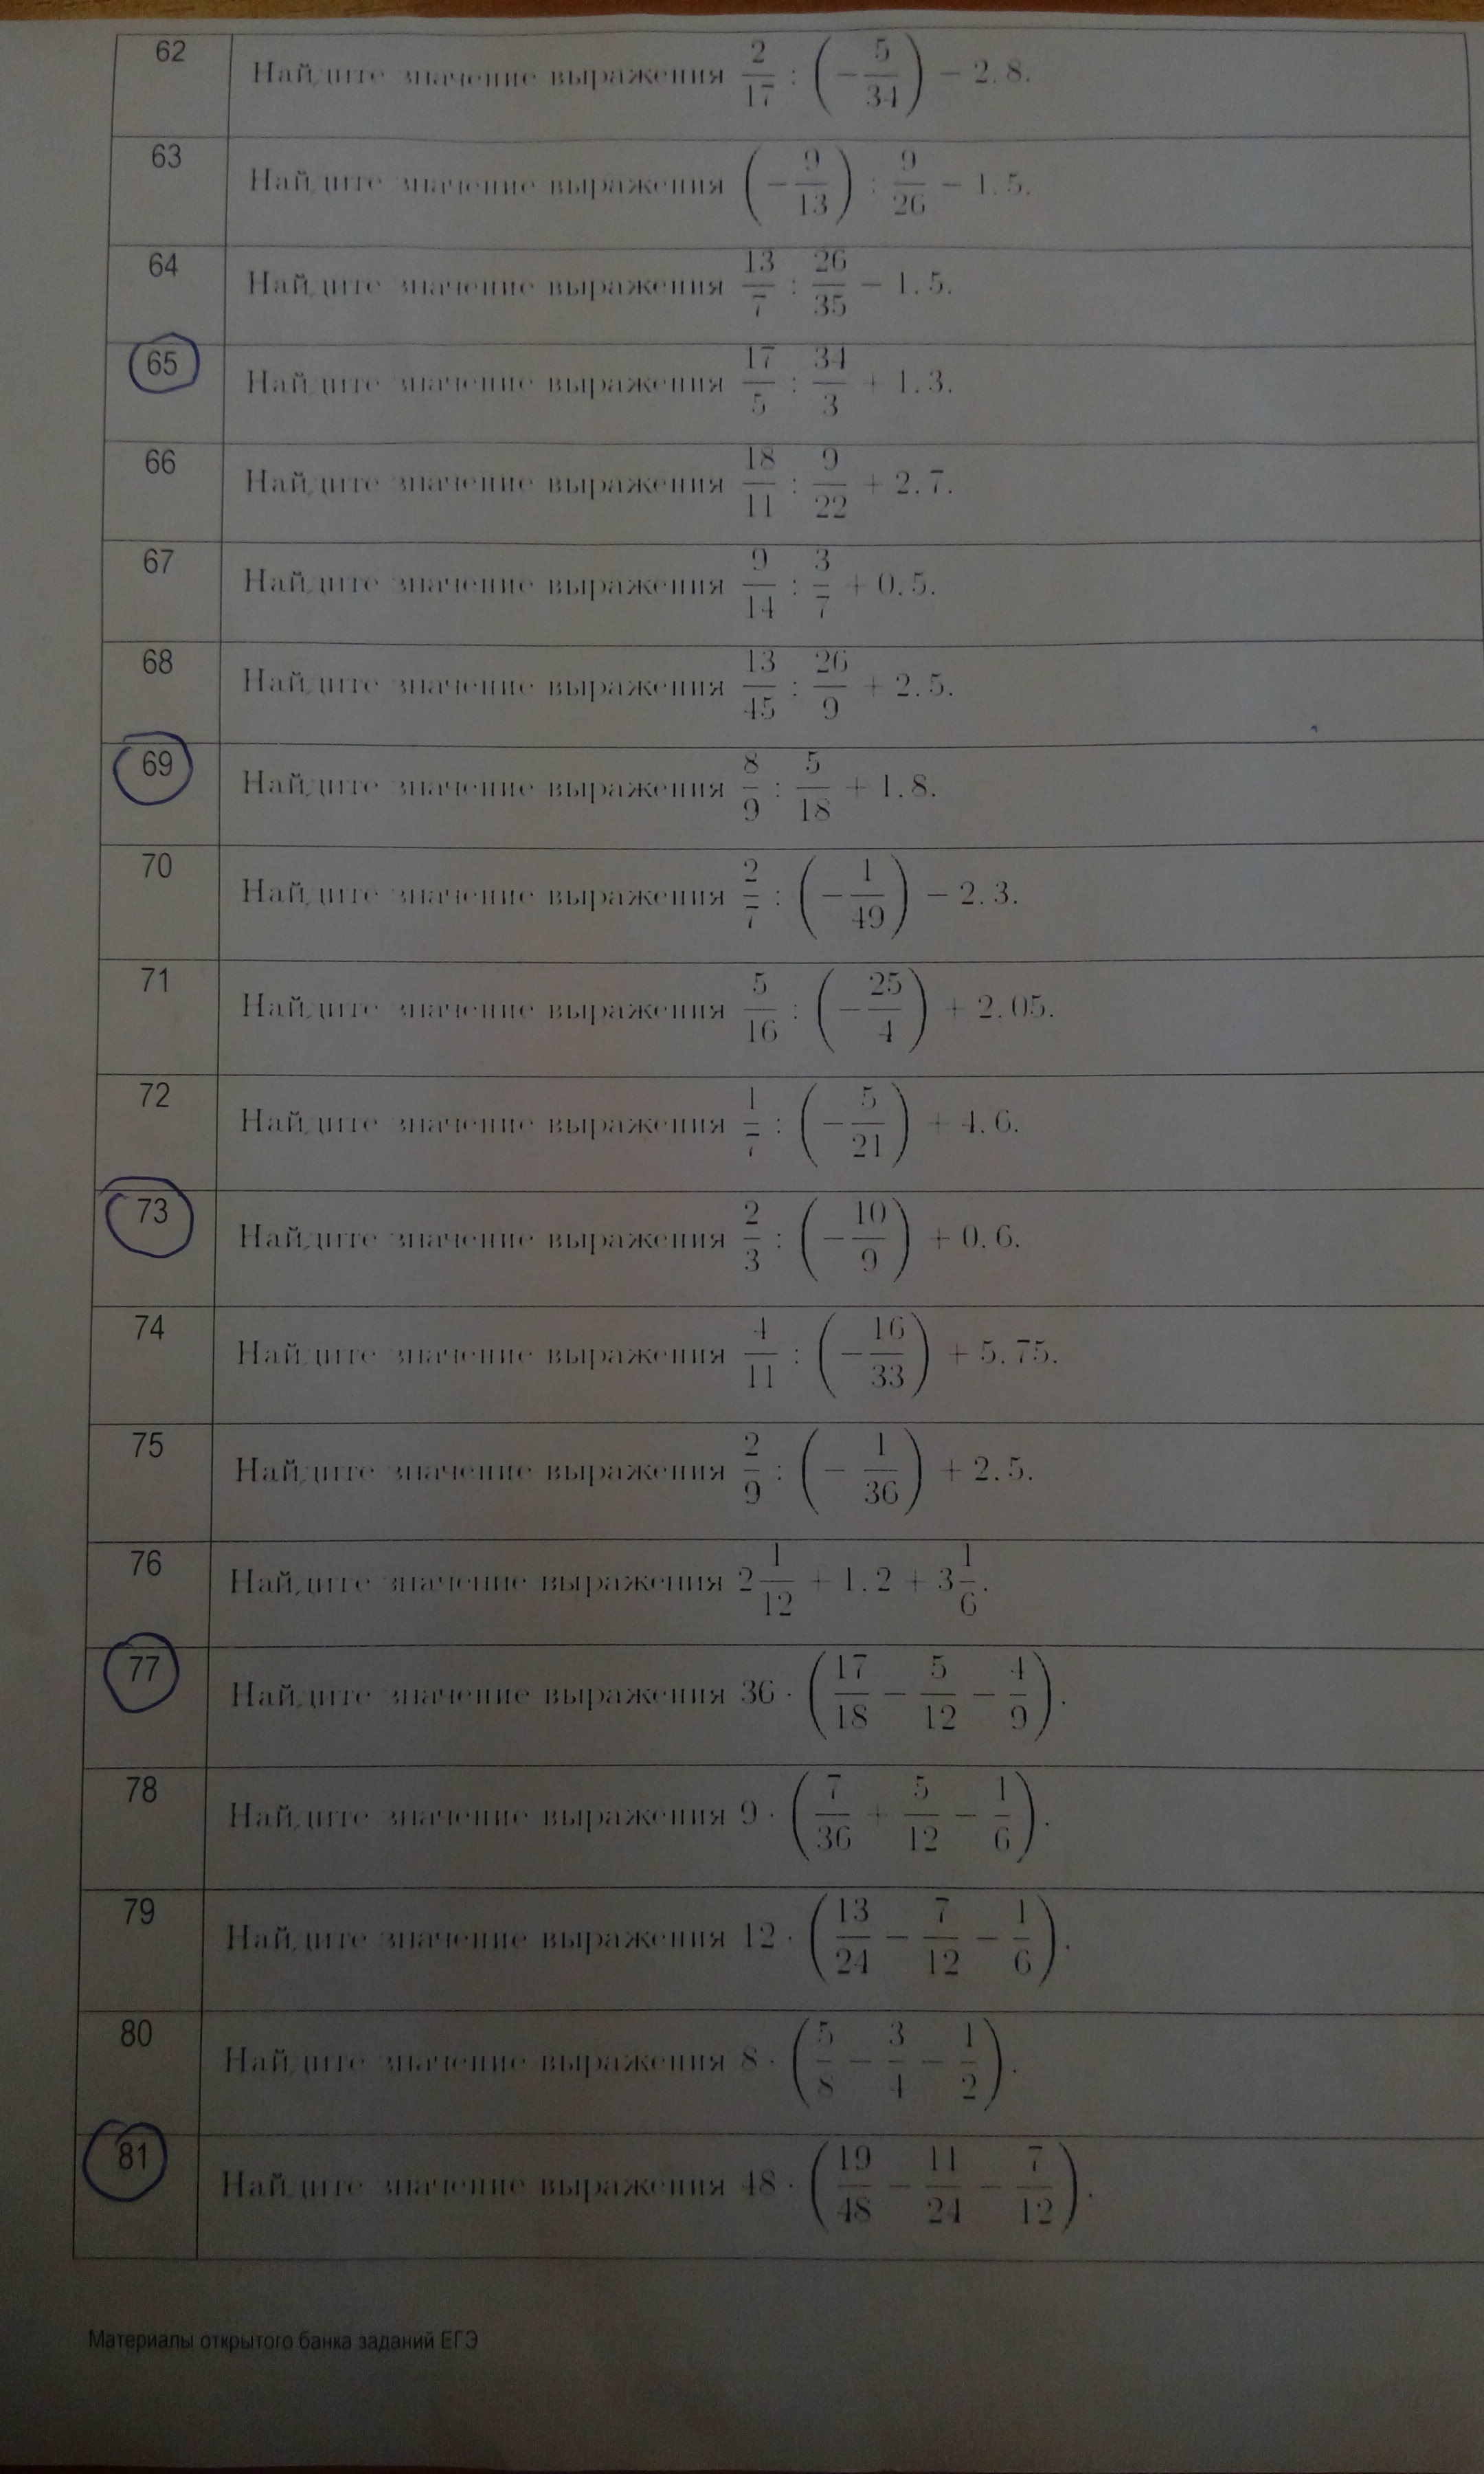 62 Найдите значение выражения 2/17 : (−5/34) − 2,8.
63 Найдите значение выражения (−9/13) : 9/26 − 1,5.
64 Найдите значение выражения 13/7 : 26/35 − 1,5.
65 Найдите значение выражения 17/5 : 34/3 + 1,3.
66 Найдите значение выражения 18/11 : 9/22 + 2,7.
67 Найдите значение выражения 9/14 : 3/7 + 0,5.
68 Найдите значение выражения 13/45 : 26/9 + 2,5.
69 Найдите значение выражения 8/9 : 5/18 + 1,8.
70 Найдите значение выражения 2/7 : (−1/49) − 2,3.
71 Найдите значение выражения 5/16 : (−25/4) + 2,05.
72 Найдите значение выражения 1/7 : (−5/21) + 4,6.
73 Найдите значение выражения 2/3 : (−10/9) + 0,6.
74 Найдите значение выражения 4/11 : (−16/33) + 5,75.
75 Найдите значение выражения 2/9 : (−1/36) + 2,5.
76 Найдите значение выражения 2 1/12 + 1,2 + 3 1/6.
77 Найдите значение выражения 36 · (17/18 − 5/12 − 4/9).
78 Найдите значение выражения 9 · (7/36 + 5/12 − 1/6).
79 Найдите значение выражения 12 · (13/24 − 7/12 − 1/6).
80 Найдите значение выражения 8 · (5/8 − 3/4 − 1/2).
81 Найдите значение выражения 48 · (19/48 − 11/24 − 7/12).
Материалы открытого банка заданий ЕГЭ